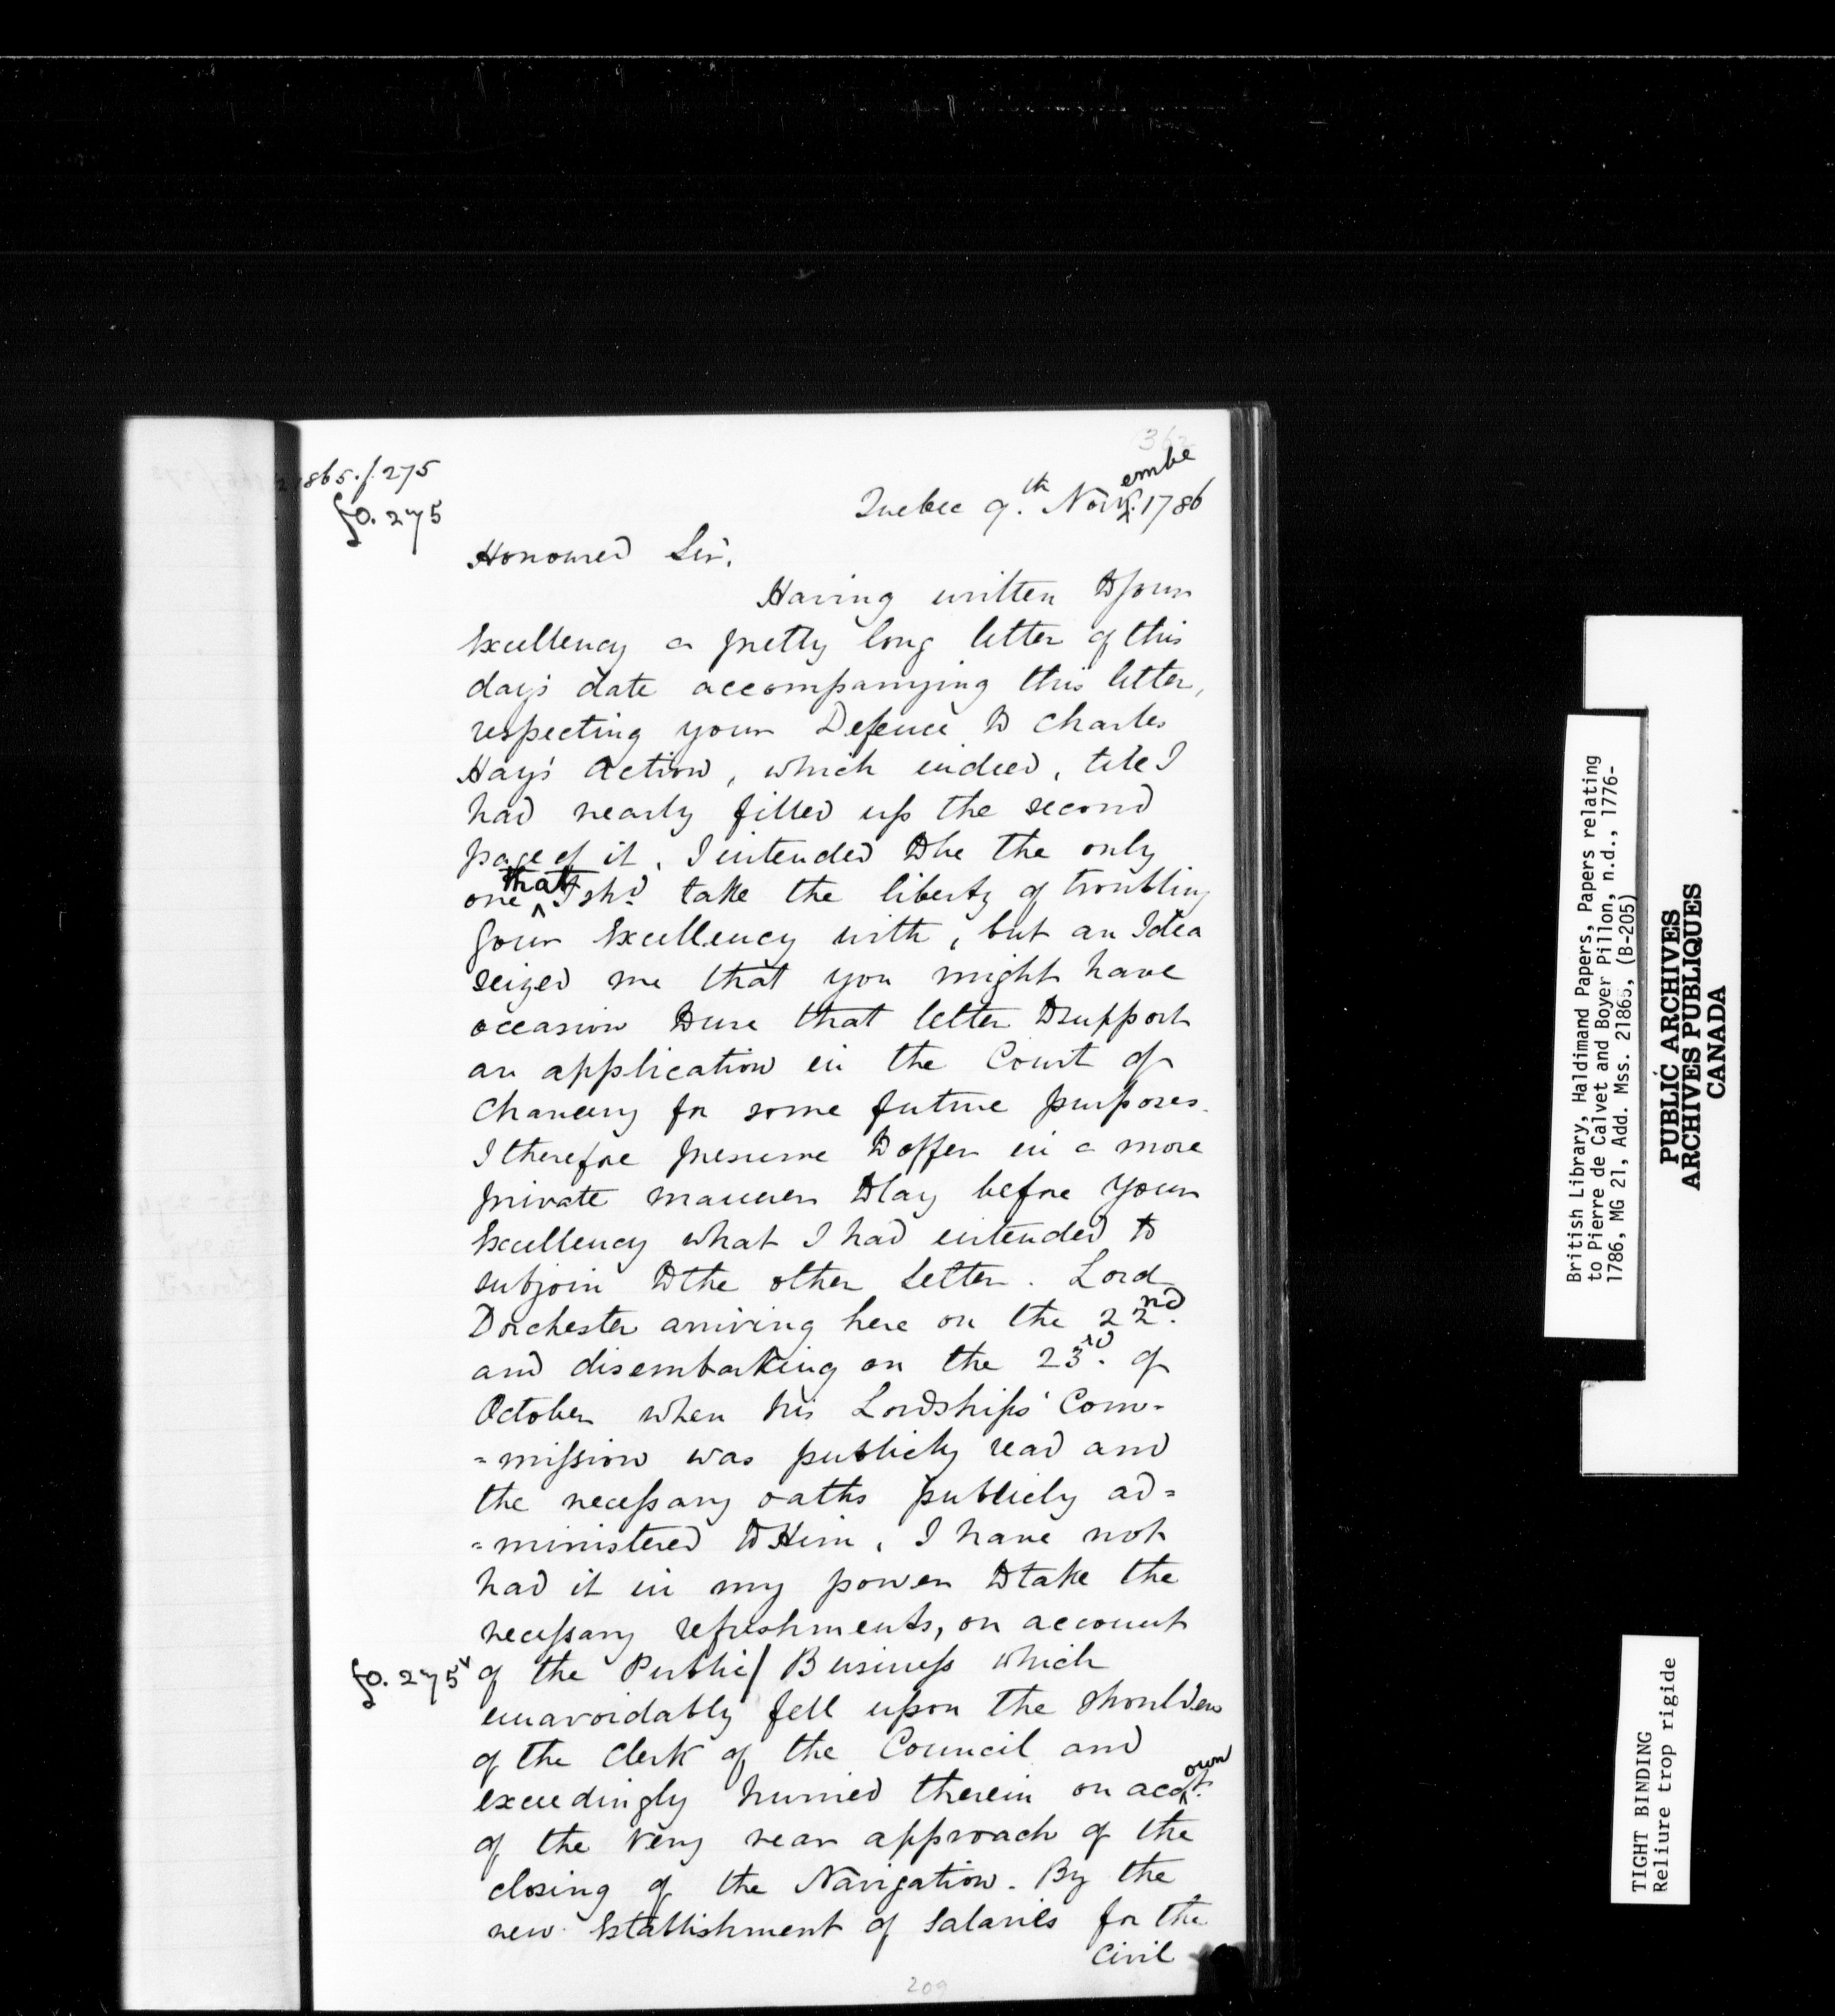 362
21865.f.275
fo. 275
Quebec 9.th November 1786
Honoured Sir.
Having written to your
Excellency a pretty long letter of this
day's date accompanying this letter,
respecting your Defence to Charles
Hay's Action, which indeed, till I
had nearly filled up the second
page of it, I intended to be the only
one that I shd. take the liberty of troubling
your Excellency with, but an Idea
seized me that you might have
occasion to use that letter to support
an application in the Court of
Chancery for some future purposes.
I therefore presume to offer in a more
private manner to lay before your
Excellency what I had intended to
subjoin to the other letter. Lord
Dorchester arriving here on the 22nd.
and disembarking on the 23rd. of
October when his Lordships' Com-
=mission was publicly read and
the necessary oaths publicly ad=
=ministered to Him, I have not
had it in my power to take the
necessary refreshments, on account
fo. 275v of the Public/ Business which
unavoidably fell upon the shoulders
of the Clerk of the Council and
exceedingly hurried therein on account.
of the very near approach of the
closing of the Navigation. By the
new Establishment of Salaries for the
Civil
209
British Library, Haldimand Papers, Papers relating
to Pierre de Calvet and Boyer Pillon, n.d., 1776-
1786, MG 21, Add. Mss. 21865, (B-205)
PUBLIC ARCHIVES
ARCHIVES PUBLIQUES
CANADA
TIGHT BINDING
Reliure trop rigide